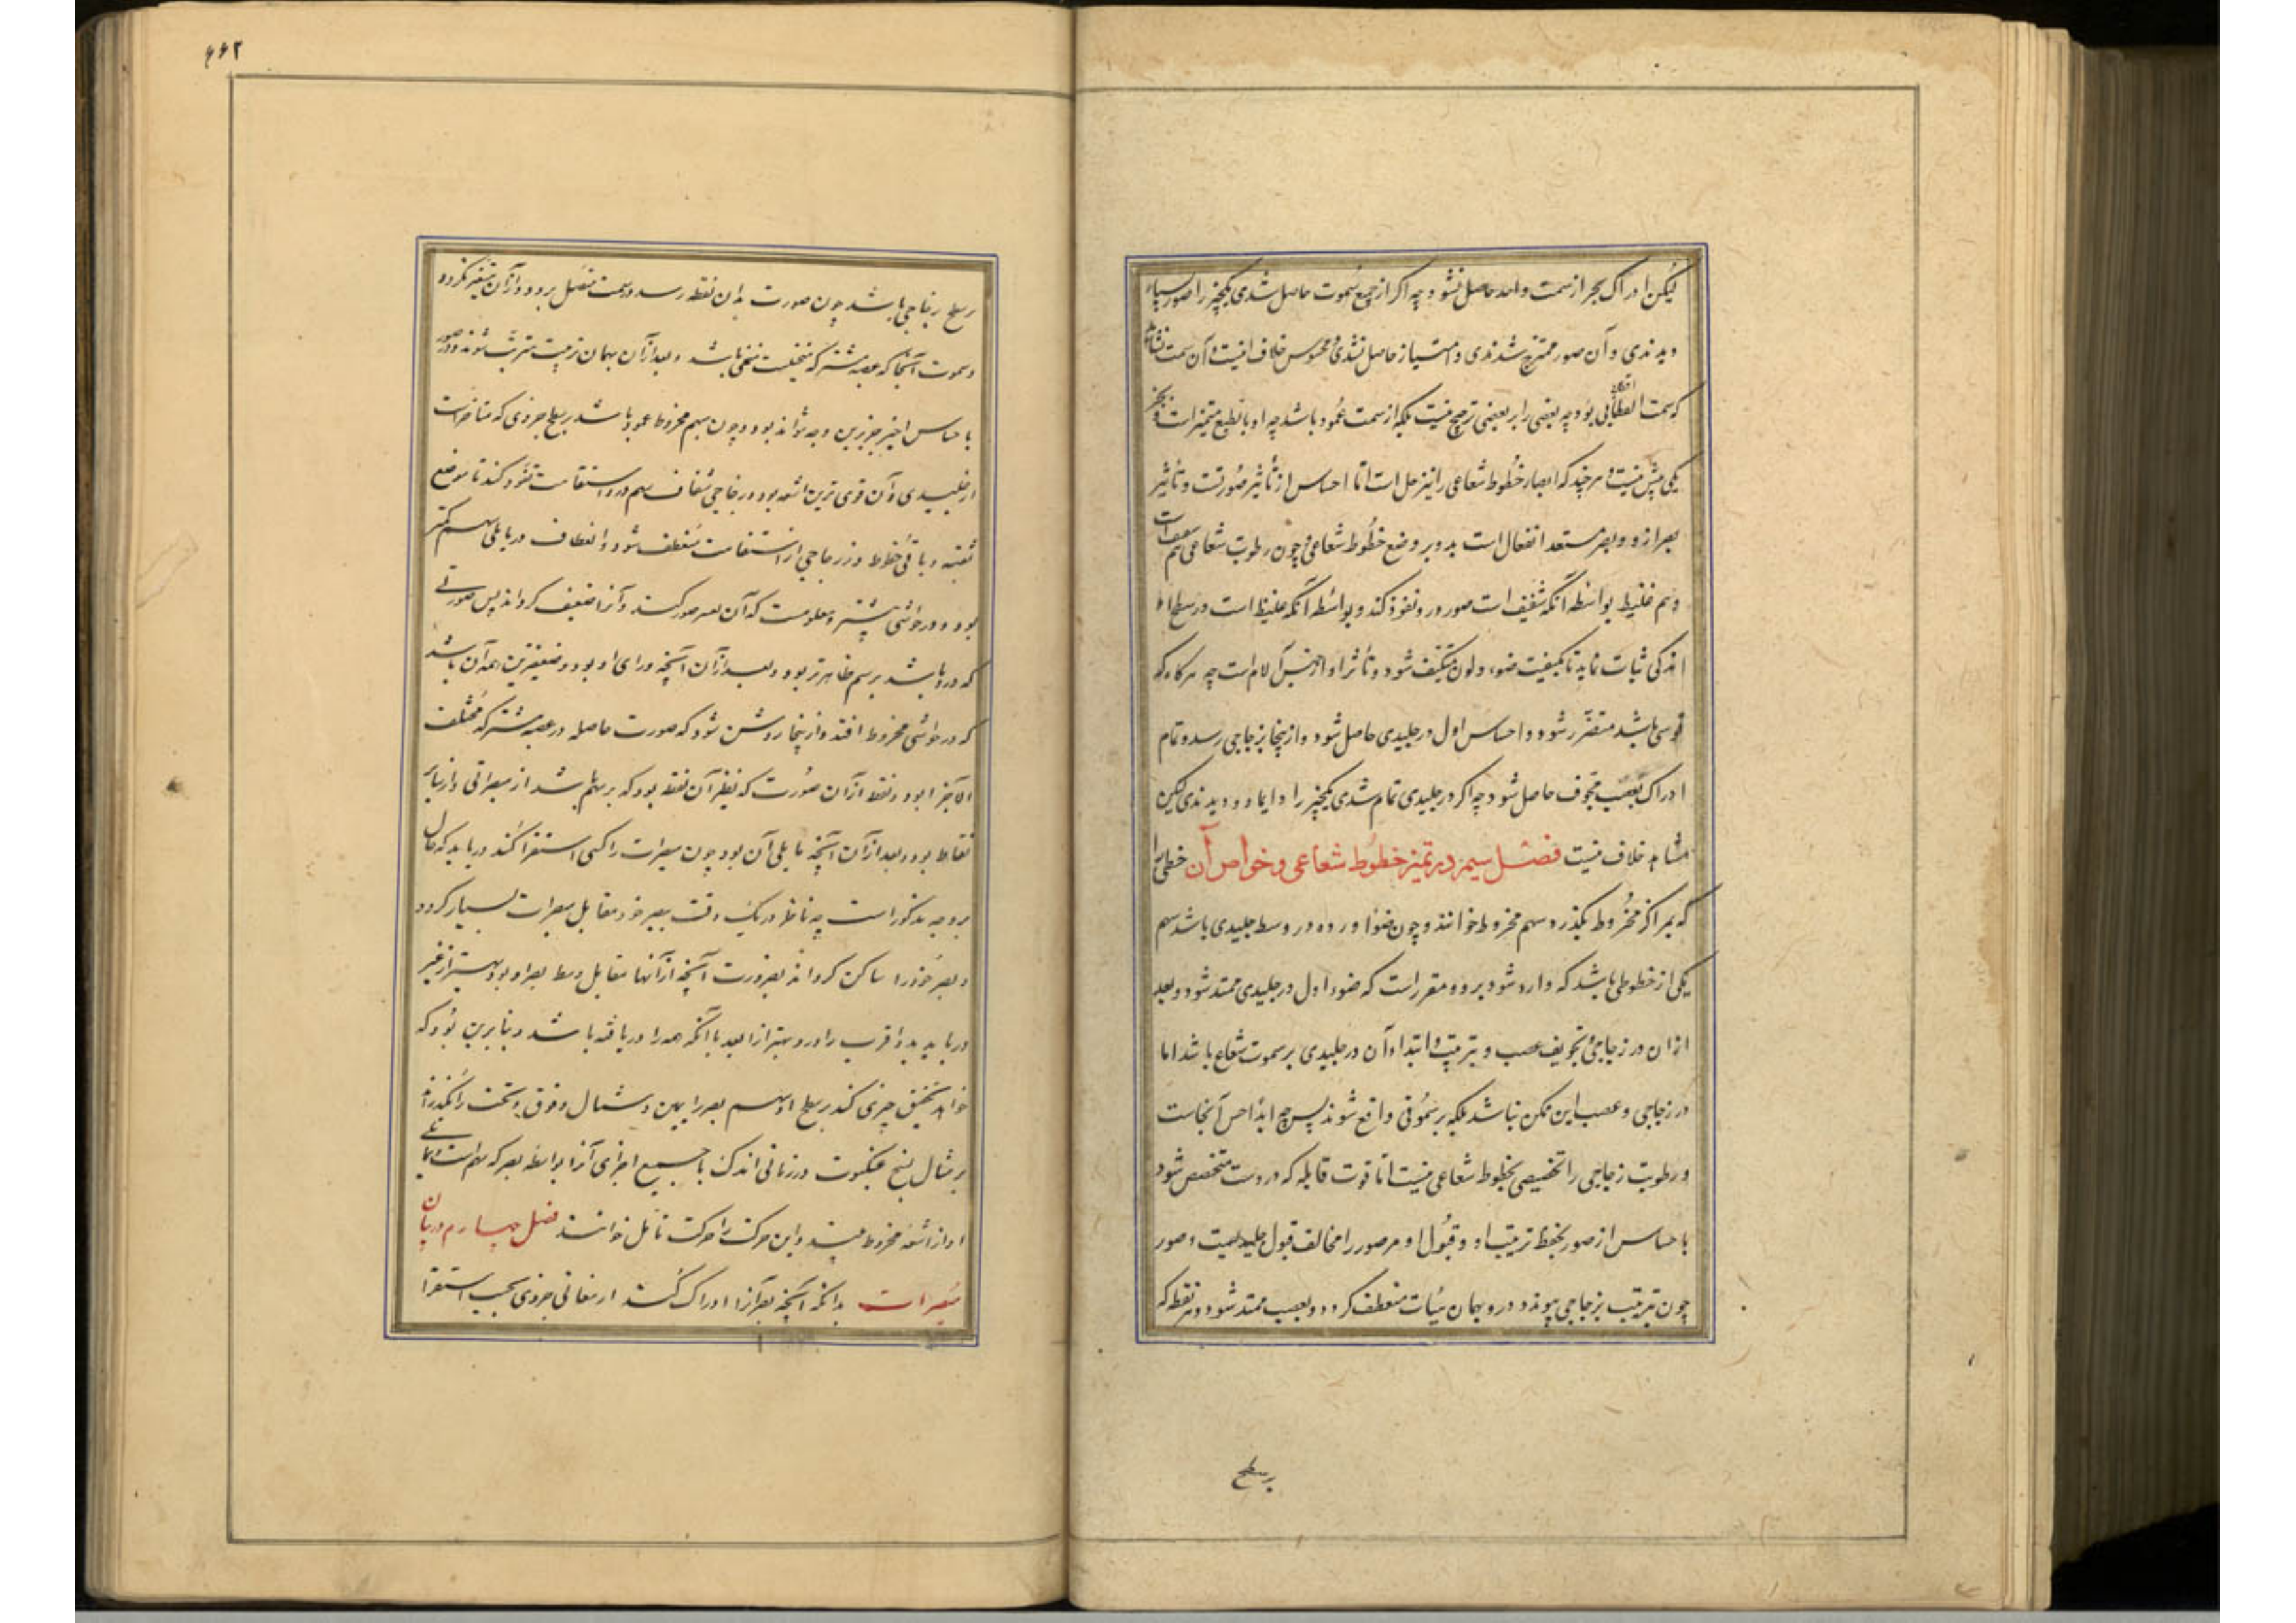 لیکن ادراک بجز از سمت واحد حاصل نشود چه اکر از جمیع سموت حاصل شدی یکچیز را صور بسیار
دیدندی و آن صور ممتزج شدندی و امتیاز حاصل نشدی و محسوس خلاف اینست و آن سمت نشاید
که سمت انعطافی بود چه بعضی را بر بعضی ترجیح نیست بلکه از سمت عمود باشد چه او بالطبع متمیز است و بجز
یکی بیش نیست و هر چند که ابصار خطوط شعاعی را نیز مدخل است اما احساس از تأثیر صورتست و تأثیر
بصر ازو و بصر مستعد انفعال است بدو بر وضع خطوط شعاعی و چون رطوبت شعاعی هم
و هم غلیظ بواسطه آنکه شفیف است صور درو نفوذ کند و بواسطه آنکه غلیظ است در سطح او
اندکی ثبات نماید تا بکیفیت ضوء و لون متکیف شود و تأثر او از جنس آلام است چه هرکاه که
قوی باشد متضرر شود و احساس اول در جلیدی حاصل شود و از ینجا بزجاجی رسد و تمام
ادراک بعصب مجوف حاصل شود چه اکر در جلیدی تمام شدی یکچیز را دایما دو دیدندی لیکن
مشاهد خلاف نیست فصل سیم در تمیز خطوط شعاعی و خواص آن خطی را
که بمراکز مخروط بکذرد سهم مخروط خوانند و چون ضوء وارده در وسط جلیدی باشد سهم
یکی از خطوطی باشد که وارد شود برو و مقرر است که ضوء اول در جلیدی ممتد شود و بعد
ازان در زجاجی و تجویف عصب و بترتیب و ابتداء آن در جلیدی بر سموت شعاع باشد اما
در زجاجی و عصب این ممکن نباشد بلکه بر سموتی واقع شوند پس چه ابداء حس آنجاست
و رطوبت زجاجی را تخصیصی بخطوط شعاعی نیست اما قوت قابله که دروست متخصص شود
باحساس از صور بحفظ ترتیب او و قبول او مر صور را مخالف قبول جلیدیست و صور
چون بترتیب بزجاجی پیوندد درو بهمان هیأت منعطف کردد و بعصب ممتد شود و هر نقطه که
بر سطح
۶۶۲
بر سطح زجاجی باشد چون صورت بدان نقطه رسد در سمت متصل برود و ازان متغیر نکردد
و سموت آنجا که عصبه مشترکه منخیست منحنی باشد و بعد ازآن بهمان ترتیب مترتب شوند و صور
باحساس اخیر جز برین وجه نتواند بود و چون سهم مخروط عمود باشد بر سطح جزوی که متأخر است
از جلیدی و آن قوی ترین اشعه بود در زجاجی شفاف سهم درو باستقامت نفوذ کند تا موضع
ثقبه و باقی خطوط در زجاجی از استقامت منعطف شود و انعطاف در ما یلی سهم کمتر
بود و در حواشی بیشتر و معلومست که آن صور کند و آنرا ضعیف کرداند پس صورتی
که درو باشد بر سهم ظاهرتر بود و بعد ازآن آنچه ورای او بود و ضعیفترین همه آن باشد
که در حواشی مخروط افتد و از ینجا روشن شود که صورت حاصله در عصبه مشترکه مختلف
الاجزا بود و نقطه ازآن صورت که نظیر آن نقطه بود که بر سهم باشد از مبصر اقوی و از سایر
نقاط بود و بعد ازآن آنچه ما یلی آن بود چون مبصرات را کسی استقرا کند دریابد که حال
بروجه مذکور است چه ناظر در یک وقت ببصر خود مقابل مبصرات بسیار کردد
و بصر خود را ساکن کرداند بضرورت آنچه ازآنها مقابل وسط بصر او بود بهتر از غیر
دریابد و اقرب را درو بهتر از ابعد با آنکه همه را دریافته باشد و بنابرین بود که
خواهد تحقیق چیزی کند بر سطح او سهم بصر را بیمین و شمال و فوق و تحت بکذراند
بر مثال نسج عنکبوت در زمانی اندک با جمیع اجزای آنرا بواسطه بصر که سهم است
او از اشعه مخروط بیند و این حرکت را حرکت تأمل خوانند فصل چهارم در بیان
مبصرات بدانکه آنچه بصر آنرا ادراک کند از معانی جزوی بحسب استقرا